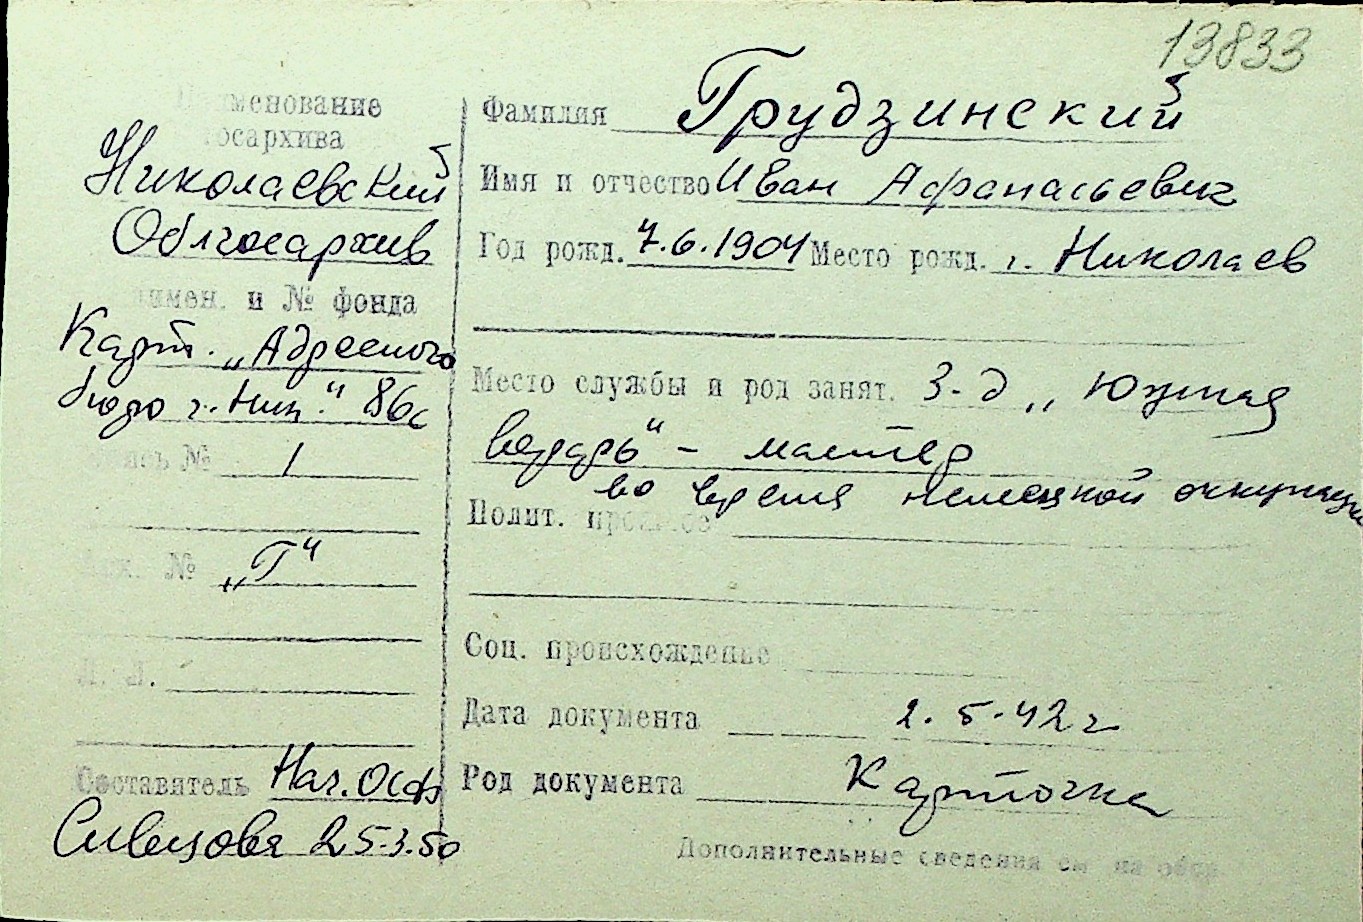 13833
Наименование
госархива
Николаевский
Облгосархив
Наимен. и № фонда
Карт. „Адресного
бюро г. Ник." 86с
Опись № 1
Арх. № „Г"
Л. Л.
Составитель Нач. ОСФ
25.3.50
Фамилия Грудзинский
Имя и отчество Иван Афанасьевич
Год рожд. 7.6.1904 Место рожд. г. Николаев
Место службы и род занят. З-д „Южная
верфь" – мастер
во время немецкой оккупации
Полит. прошлое
Соц. происхожденье
Дата документа 2.5.42 г
Род документа Карточка
Дополнительные сведения см на обор.